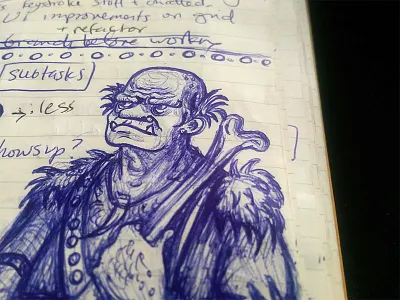 keystroke stuff + chatted.
UI improvements on grid
+ refactor
before
subtasks
less
shows up?